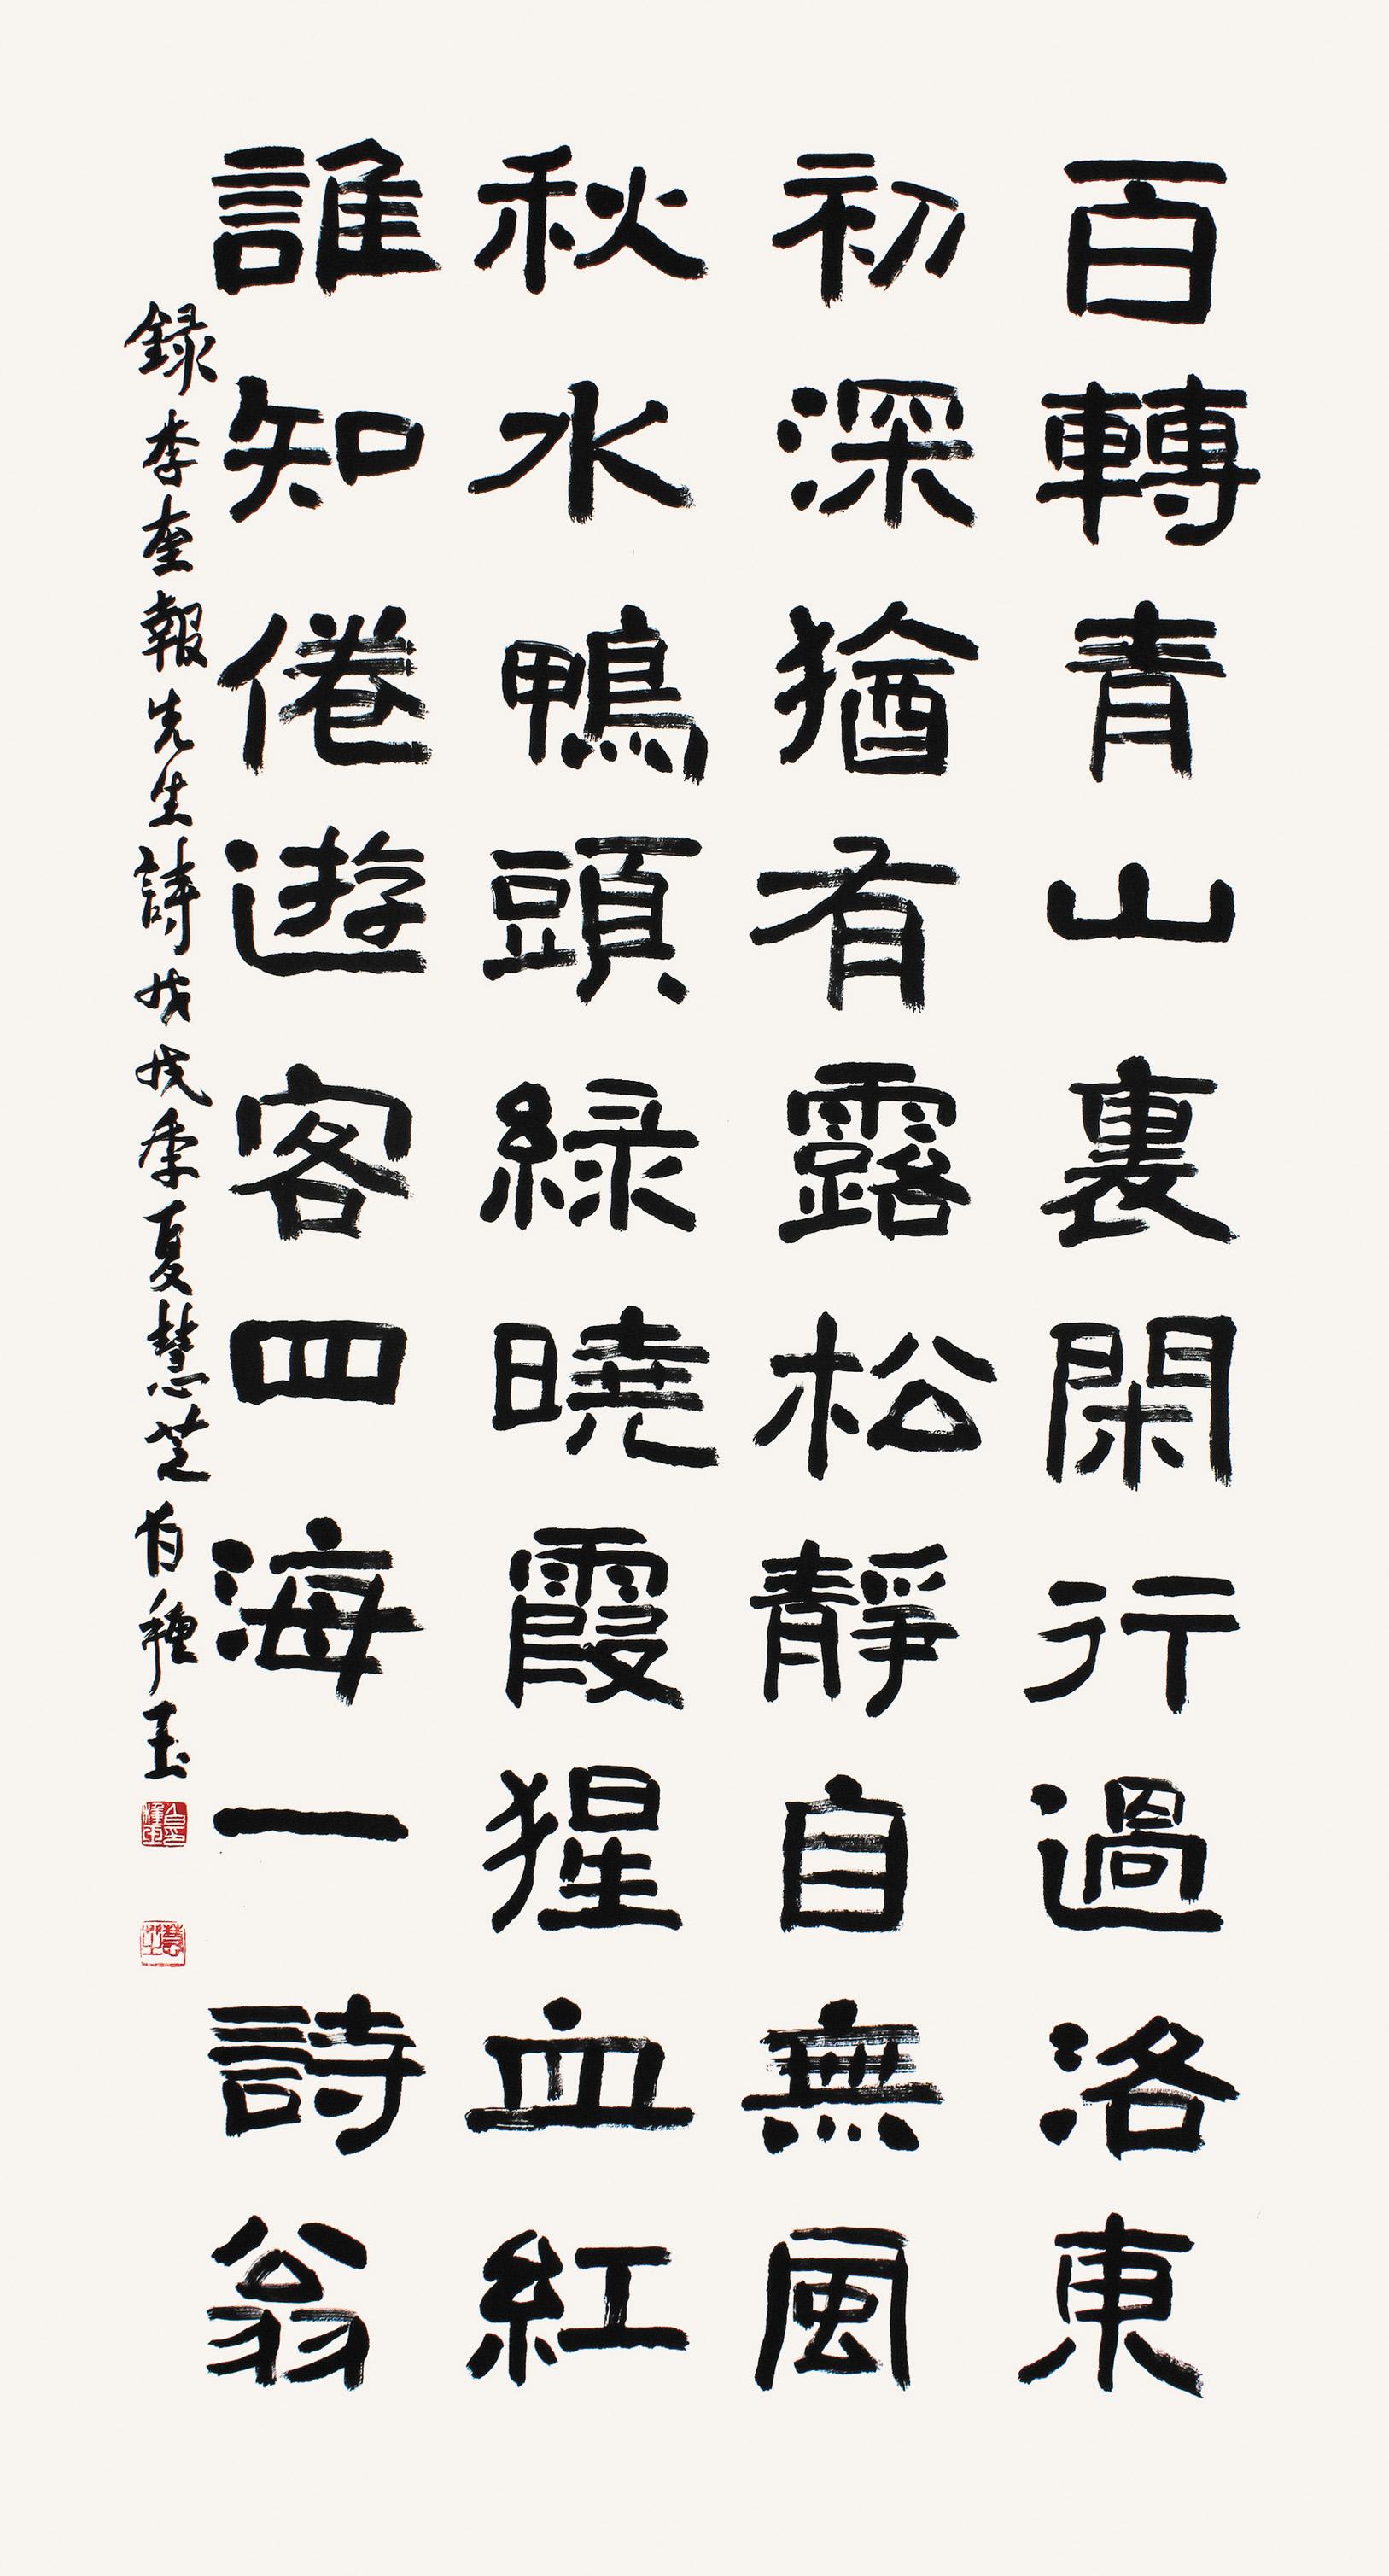 百轉青山裏閑行過洛東
初深猶有露松靜自無風
秋水鴨頭綠曉霞猩血紅
誰知倦遊客四海一詩翁
錄李奎報先生詩戊戌季夏慧芝白種玉